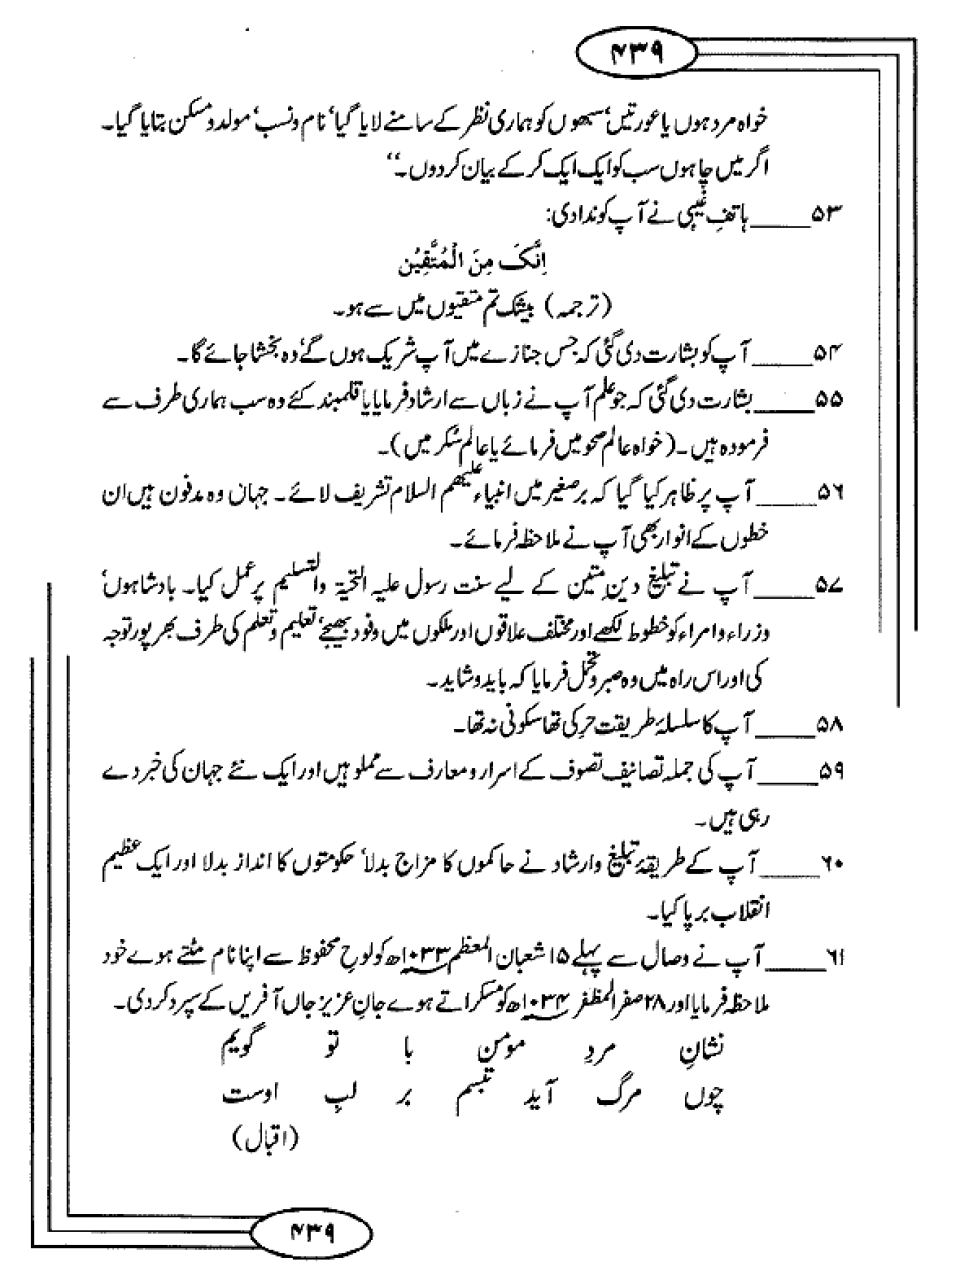 ۴۳۹
خواہ مرد ہوں یا عورتیں‘ سبھوں کو ہماری نظر کے سامنے لایا گیا‘ نام و نسب‘ مولد و مسکن بتایا گیا۔
اگر میں چاہوں سب کو ایک ایک کر کے بیان کردوں۔‘‘
۵۳____ہاتفِ غیبی نے آپ کو ندا دی:
اِنَّکَ مِنَ الْمُتَّقِیْن
(ترجمہ) بیشک تم متقیوں میں سے ہو۔
۵۴____آپ کو بشارت دی گئی کہ جس جنازے میں آپ شریک ہوں گے‘ وہ بخشا جائے گا۔
۵۵____بشارت دی گئی کہ جو علم آپ نے زباں سے ارشاد فرمایا یا قلمبند کئے وہ سب ہماری طرف سے
فرمودہ ہیں۔ (خواہ عالم صحو میں فرمائے یا عالم سُکر میں)۔
۵۶____آپ پر ظاہر کیا گیا کہ برصغیر میں انبیاء علیھم السلام تشریف لائے۔ جہان وہ مدفون ہیں ان
خطوں کے انوار بھی آپ نے ملاحظہ فرمائے۔
۵۷____آپ نے تبلیغ دینِ متین کے لیے سنت رسول علیہ التحیۃ والتسلیم پر عمل کیا۔ بادشاہوں‘
وزراء و امراء کو خطوط لکھے اور مختلف علاقوں اور ملکوں میں وفود بھیجے‘ تعلیم و تعلم کی طرف بھرپور توجہ
کی اور اس راہ میں وہ صبر و تحمل فرمایا کہ باید و شاید۔
۵۸____آپ کا سلسلۂ طریقت حرکی تھا سکونی نہ تھا۔
۵۹____آپ کی جملہ تصانیف تصوف کے اسرار و معارف سے مملو ہیں اور ایک نئے جہان کی خبر دے
رہی ہیں۔
۶۰____آپ کے طریقۂ تبلیغ و ارشاد نے حاکموں کا مزاج بدلا‘ حکومتوں کا انداز بدلا اور ایک عظیم
انقلاب برپا کیا۔
۶۱____آپ نے وصال سے پہلے ۱۵ شعبان المعظم ۱۰۳۳ھ کو لوحِ محفوظ سے اپنا نام مٹتے ہوے خود
ملاحظہ فرمایا اور ۲۸ صفر المظفر ۱۰۳۴ھ کو مسکراتے ہوے جانِ عزیز جاں آفریں کے سپرد کردی۔
نشانِ مردِ مومن با تو گویم
چوں مرگ آید تبسم بر لبِ اوست
(اقبال)
۴۳۹